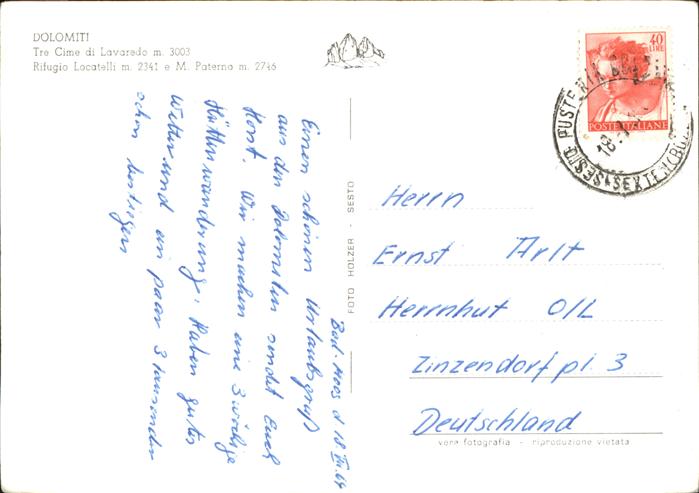 DOLOMITI
Tre Cime di Lavaredo m. 3003
Rifugio Locatelli m. 2341 e M. Paterno m. 2746
Bad-Moos d 18 VII. 64
Einen schönen Urlaubsgruß
aus den Dolomiten sendet Euch
Horst. Wir machen eine 3 wöchige
Hüttenwanderung. Haben gutes
Wetter und ein paar 3 tausender
schon bestiegen
FOTO HOLZER - SESTO
40
LIRE
POSTE ITALIANE
SESTO PUSTERIA
SEXTEN
18
Herrn
Ernst Arlt
Herrnhut O/L
Zinzendorfpl. 3
Deutschland
vera fotografia - riproduzione vietata